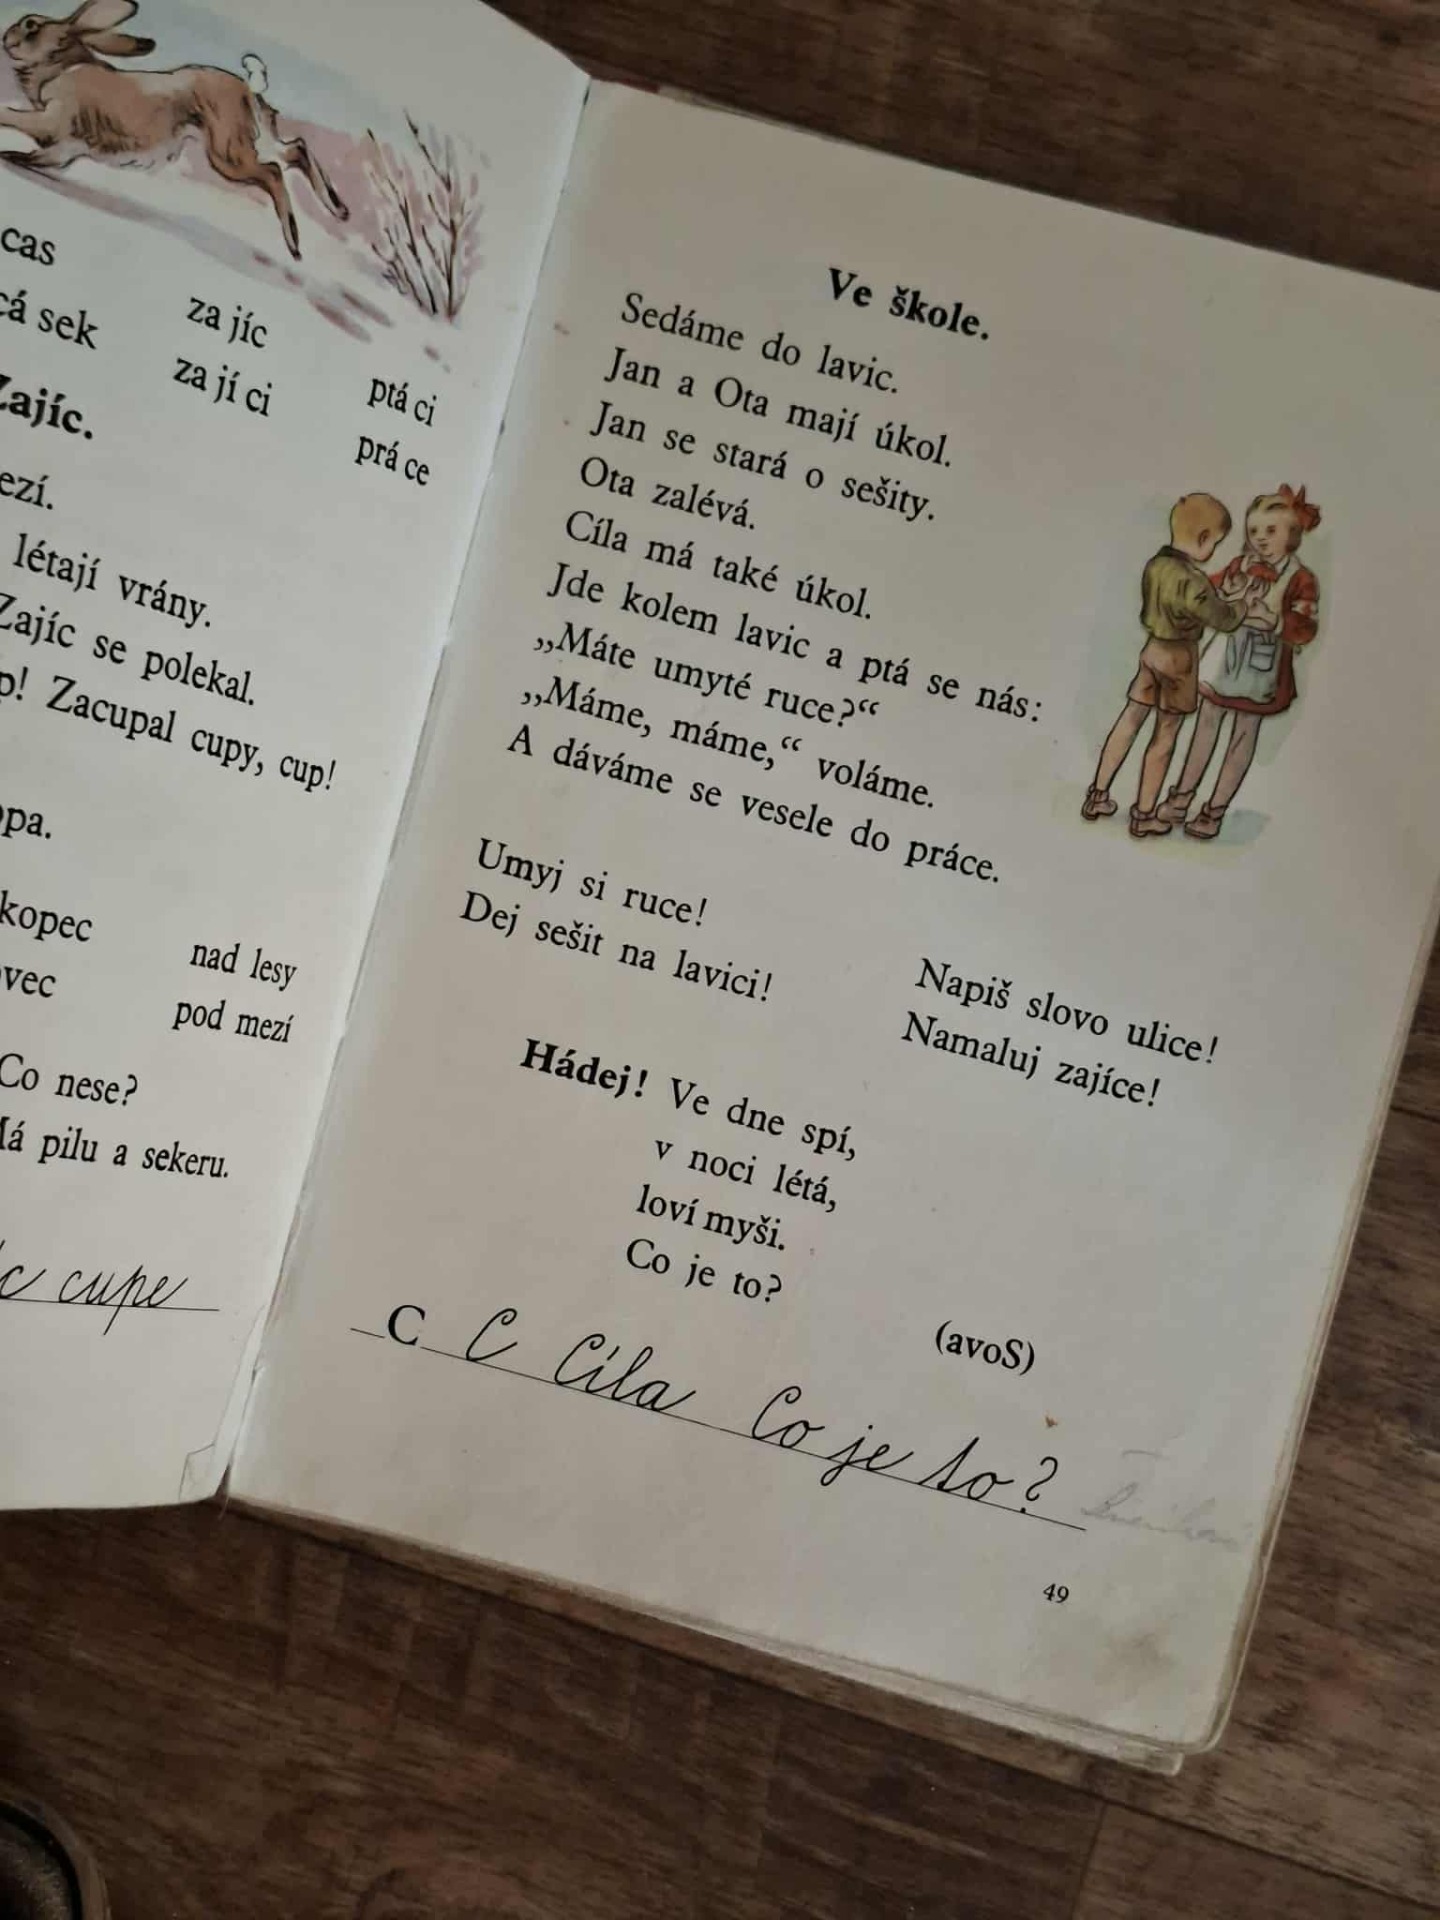 cas
cá sek
za jíc
za jí ci
ptá ci
prá ce
Zajíc.
ezí.
létají vrány.
Zajíc se polekal.
p! Zacupal cupy, cup!
opa.
kopec
vec
nad lesy
pod mezí
Co nese?
Má pilu a sekeru.
c cupe
Ve škole.
Sedáme do lavic.
Jan a Ota mají úkol.
Jan se stará o sešity.
Ota zalévá.
Cíla má také úkol.
Jde kolem lavic a ptá se nás:
„Máte umyté ruce?“
„Máme, máme,“ voláme.
A dáváme se vesele do práce.
Umyj si ruce!
Dej sešit na lavici!
Napiš slovo ulice!
Namaluj zajíce!
Hádej! Ve dne spí,
v noci létá,
loví myši.
Co je to?
(avoS)
C C Cíla Co je to?
49